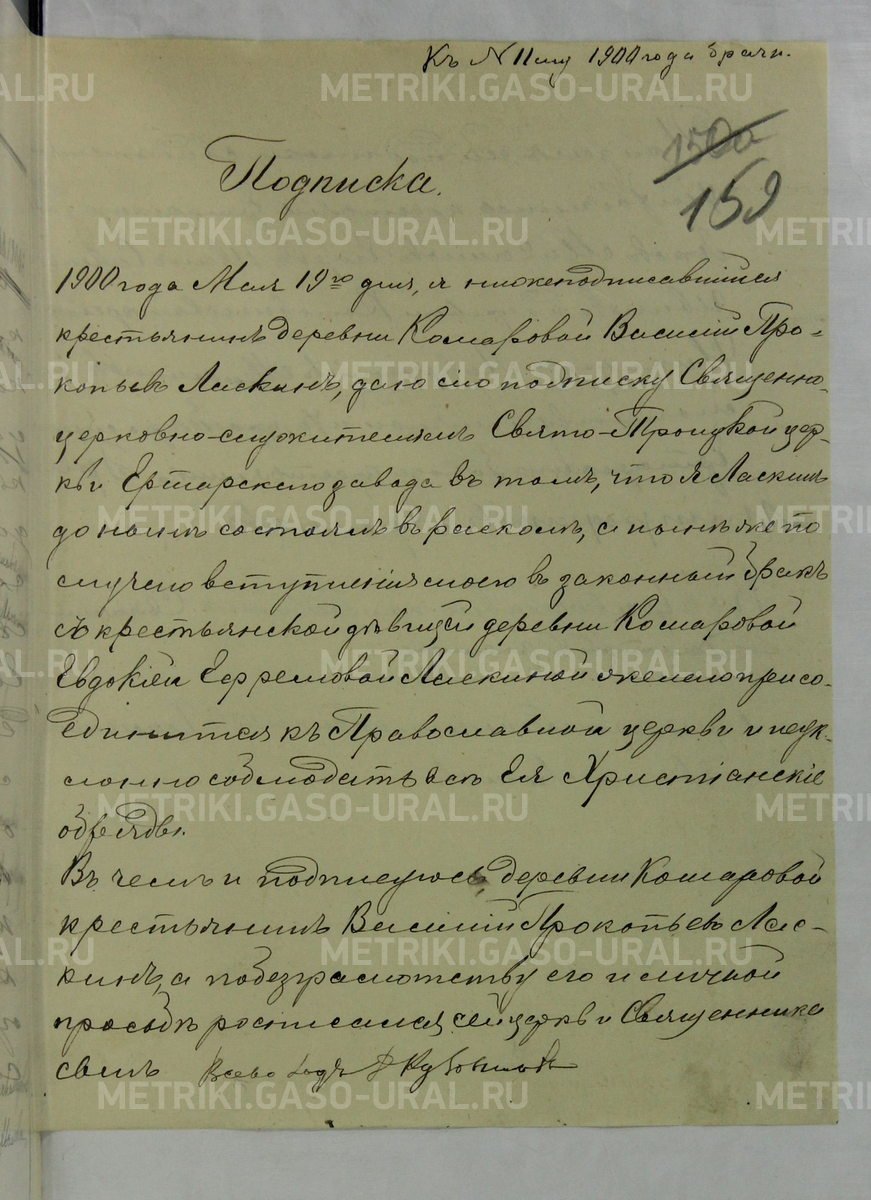 Къ № 11му 1900 года брачн.
150а
159
Подписка.
1900 года Мая 19го дня, я нижеподписавшійся
крестьянинъ деревни Комаровой Василій Про-
копьевъ Ласкинъ, даю сію подписку Священно-
церковно-служителямъ Свято-Троицкой цер-
кви Ертарскаго завода въ томъ, что я Ласкинъ
до нынѣ состоялъ въ расколѣ, а нынѣ же по
случаю вступленія моего въ законный бракъ
съ крестьянской дѣвицей деревни Комаровой
Евдокіей Ефремовой Ласкиной желаю присо-
единится къ Православной церкви и неук-
лонно соблюдать всѣ Ея Христіанскіе
обряды.
Въ чемъ и подписуюсь деревни Комаровой
крестьянинъ Василій Прокопьевъ Лас-
кинъ, а по безграмотству его и личной
прозьбѣ росписался сей церкви Священника
сынъ Всеволодъ
METRIKI.GASO-URAL.RU